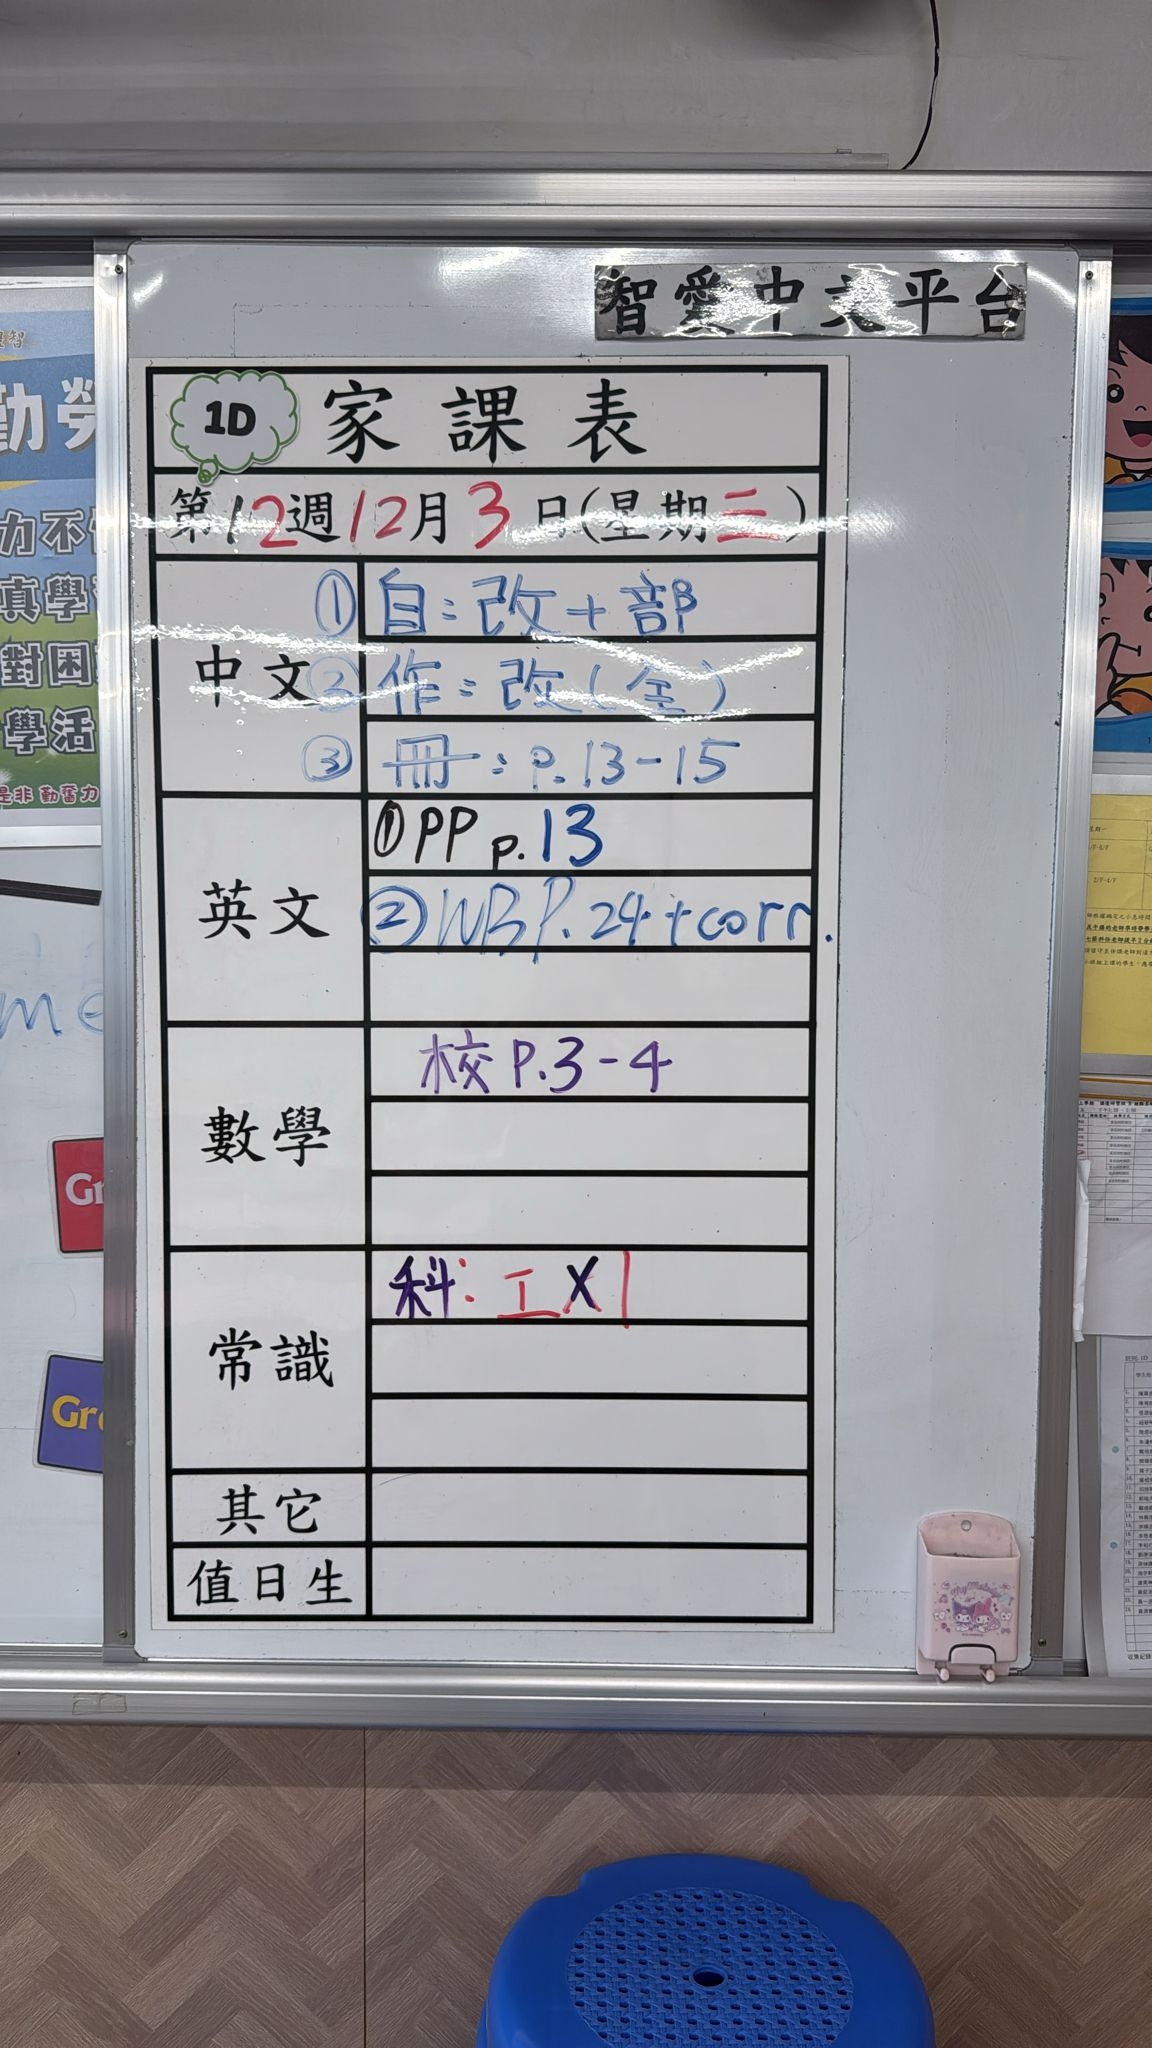 智愛中文平台
1D 家課表
第12週12月3日(星期三)
中文
① 自:改+部
② 作:改(全)
③ 冊:P.13-15
英文
① PP p.13
② WB P.24+corr.
數學
校 P.3-4
常識
科: 工X1
其它
值日生
勤勞
真學
對困
學活
是非 勤奮力
me
Gr
Gr